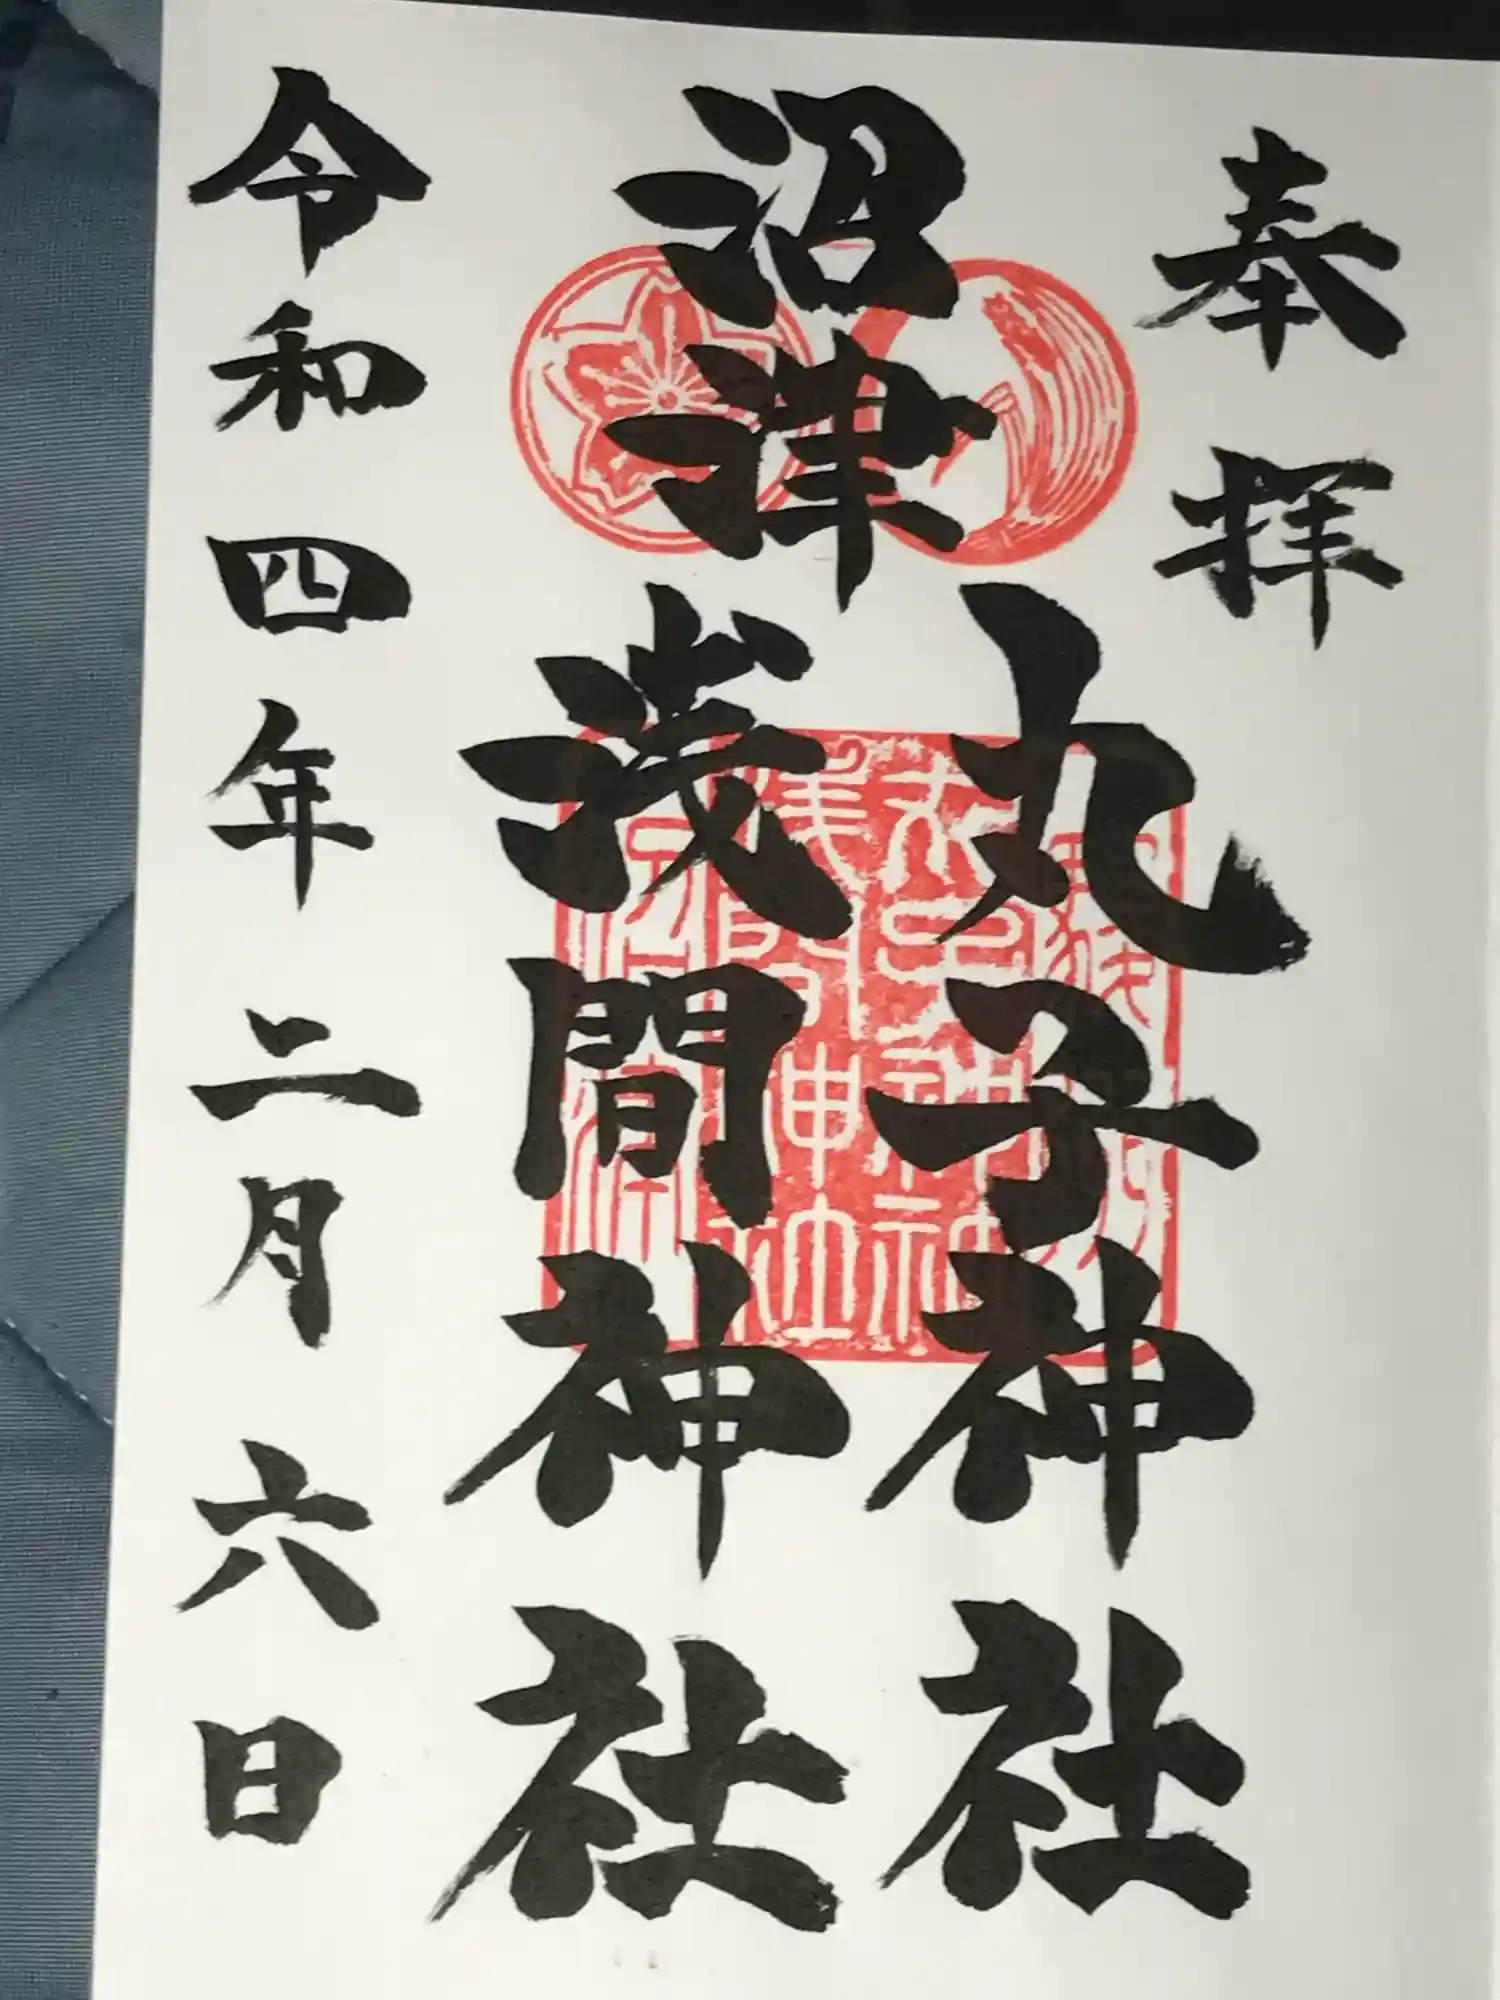 奉拝
沼津
丸子神社
浅間神社
令和四年二月六日